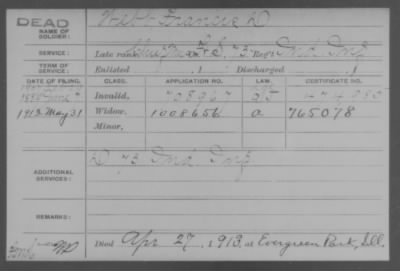 DEAD
NAME OF SOLDIER: Webb Francis D
SERVICE: Late rank, F&S, 73 Reg't Ind Inf
TERM OF SERVICE: Enlisted , 1 Discharged , 1
DATE OF FILING. CLASS. APPLICATION NO. LAW. CERTIFICATE NO.
Invalid,
1913 May 31 Widow, 1008656 a 765078
Minor,
ADDITIONAL SERVICES: D 73 Ind Inf
REMARKS:
Died Apr 27, 1913, at Evergreen Park, Ill.